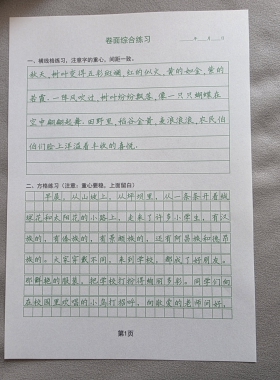 卷面综合练习
年 月 日
一、横线格练习，注意字的重心，间距一致。
秋天，树叶变得五彩斑斓，红的似火，黄的如金，紫的
若霞。一阵风吹过，树叶纷纷飘落，像一只只蝴蝶在
空中翩翩起舞。田野里，稻谷金黄，麦浪滚滚，农民伯
伯们脸上洋溢着丰收的喜悦。
二、方格练习（注意：重心要稳，上面留白）
早晨，从山坡上，从坪坝里，从一条条开着绒
球花和太阳花的小路上，走来了许多小学生，有汉
族的，有傣族的，有景颇族的，还有阿昌族和德昂
族的。大家穿戴不同，来到学校，都成了好朋友。
那鲜艳的服装，把学校打扮得绚丽多彩。同学们向
在校园里欢唱的小鸟打招呼，向敬爱的老师问好，
第1页